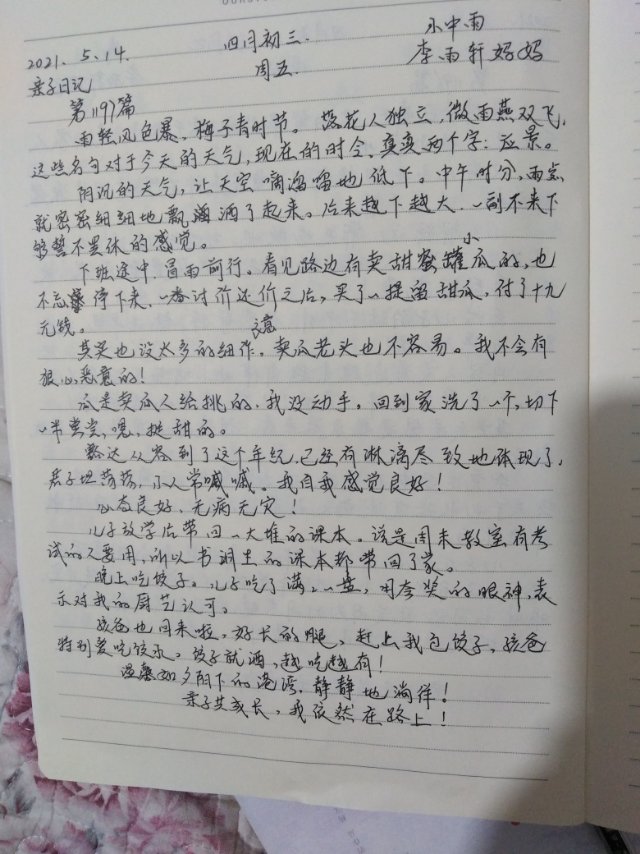 2021.5.14. 四月初三. 小中雨
亲子日记 周五. 李雨轩妈妈
第1197篇
雨轻风色暴，梅子青时节。落花人独立，微雨燕双飞，
这些名句对于今天的天气，现在的时令，真实两个字：应景。
阴沉的天气，让天空嘀溜溜地低下。中午时分，雨点
就密密细细地飘洒了起来。后来越下越大，一副不来下
够誓不罢休的感觉。
下班途中，冒雨前行。看见路边有卖甜蜜罐小瓜的，也
不忘停下来，一番讨价还价之后，买了一提留甜瓜，付了十九
元钱。
其实也没太多的纠作，卖瓜老头也不容易。我不会有
狠心恶意的！
瓜是卖瓜人给挑的，我没动手。回到家洗了一个，切下
一半尝尝，嗯，挺甜的。
豁达从容到了这个年纪，已经有淋漓尽致地体现了，
君子坦荡荡，小人常戚戚。我自我感觉良好！
心态良好，无病无灾！
儿子放学后带回一大堆的课本。该是周末教室有考
试的又要用，所以书洞里的课本都带回了家。
晚上吃饺子。儿子吃了满满一盘，用夸奖的眼神，表
示对我的厨艺认可。
孩爸也回来啦，好长的腿，赶上我包饺子，孩爸
特别爱吃饺子。饺子就酒，越吃越有！
温馨如夕阴下的港湾，静静地淌徉！
亲子共成长，我依然在路上！